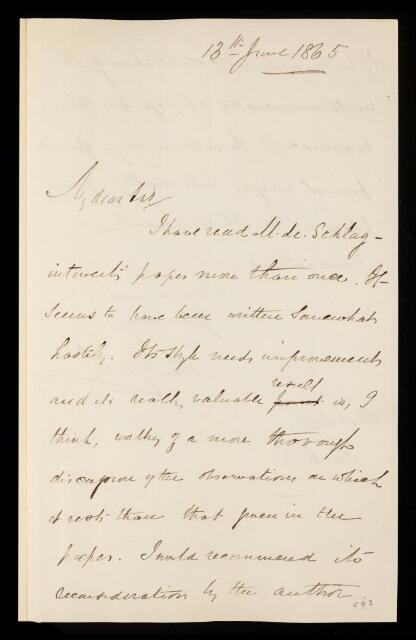 13th June 1865
My dear Sir,
I have read M. de. Schlag-
intweit's paper more than once. It
seems to have been written somewhat
hastily. Its style needs improvement
result
and its really valuable is, I
think, worthy of a more thorough
discussion of the observations on which
it rests than that given in the
paper. I would recommend its
reconsideration by the author